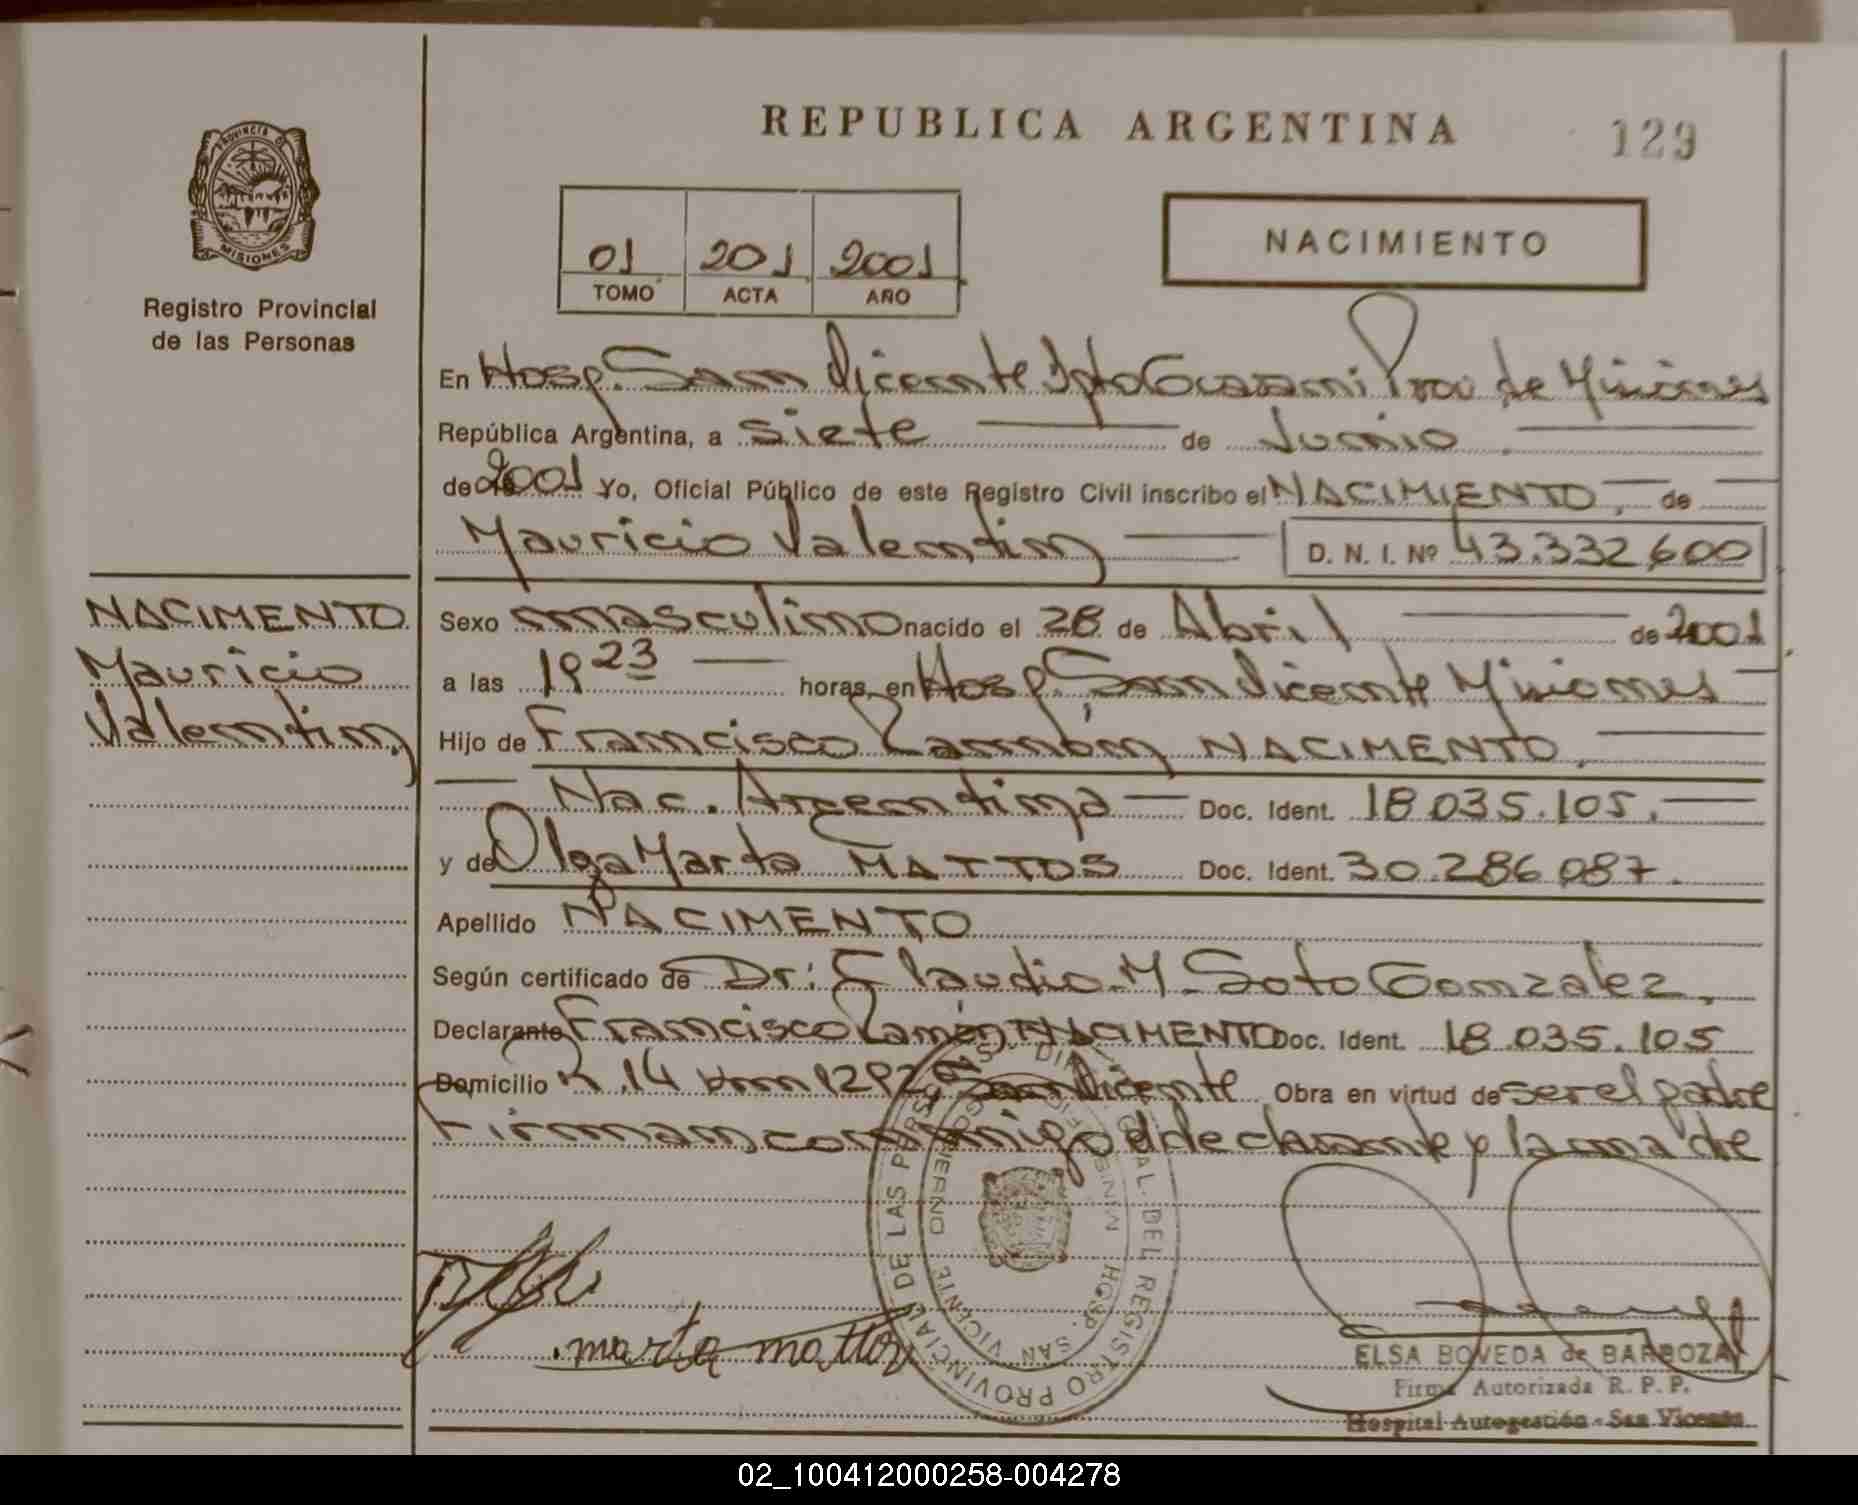 REPUBLICA ARGENTINA
129
PROVINCIA DE
MISIONES
Registro Provincial
de las Personas
01 201 2001
TOMO ACTA AÑO
NACIMIENTO
En Hosp. San Vicente Dpto Guarani Prov de Misiones
República Argentina, a siete de Junio
de 2001 Yo, Oficial Público de este Registro Civil inscribo el NACIMIENTO, de
Mauricio Valentin D. N. I. Nº 43.332,600
NACIMENTO
Mauricio
Valentin,
Sexo masculino nacido el 28 de Abril de 2001
a las 19 23 horas, en Hosp. San Vicente Misiones
Hijo de Francisco Ramón NACIMENTO,
Nac. Argentina Doc. Ident. 18.035.105.
y de Olga Marta MATTOS Doc. Ident. 30.286.087.
Apellido NACIMENTO
Según certificado de Dr: Claudio M. Soto Gonzalez,
Declarante Francisco Ramón NACIMENTO Doc. Ident. 18.035.105
Domicilio R.14 Km 1292 San Vicente Obra en virtud de ser el padre
Firman conmigo el declarante y la madre
REGISTRO PROVINCIAL DE LAS PERSONAS
HOSP. SAN VICENTE
marta mattos
ELSA BOVEDA de BARBOZA
Firma Autorizada R. P. P.
Hospital Autogestión - San Vicente
02_100412000258-004278